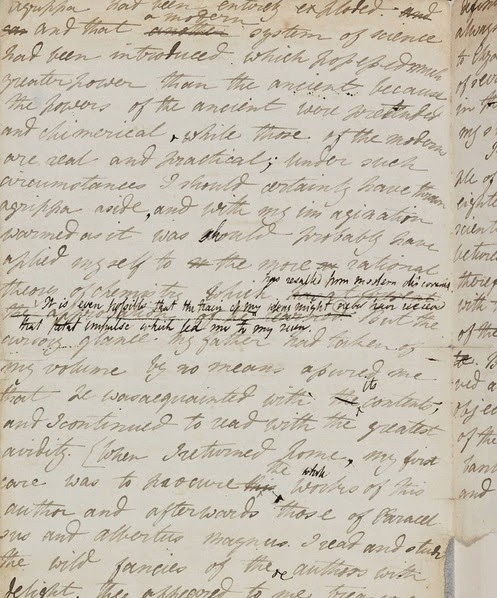 agrippa had been entirely exploded and
and that a modern system of science
had been introduced which possessed much
greater power than the ancient because
the powers of the ancient were pretended
and chimerical, while those of the modern
are real and practical; under such
circumstances I should certainly have thrown
agrippa aside, and with my imagination
warmed as it was should probably have
applied myself to the more rational
theory of chemistry which has resulted from modern discoveries
It is even possible that the train of my ideas might never have recieved
that fatal impulse which led me to my ruin. But the
cursory glance my father had taken of
my volume by no means assured me
that he was acquainted with the its contents;
and I continued to read with the greatest
avidity. [When I returned home, my first
care was to procure the whole works of this
author and afterwards those of Paracel
sus and albertus magnus. I read and studied
the wild fancies of these authors with
delight. they appeared to me treasures
always
of
in th
my s
I
ple of
eighte
with
of the
te. B
obje
of the
and